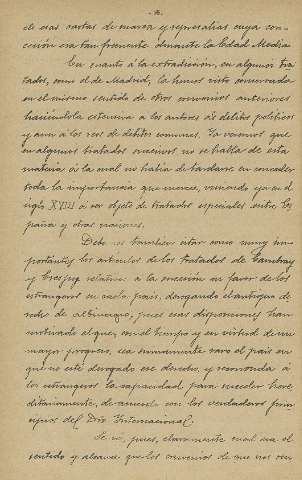 de esas cartas de marca y represalias cuya con-
cesión era tan frecuente durante la Edad Media.
En cuanto á la extradición, en algunos tra-
tados, como el de Madrid, la hemos visto conservada
en el mismo sentido de otros convenios anteriores
haciéndola extensiva a los autores de delitos políticos
y aun a los reos de delitos comunes. Ya veremos que
en algunos tratados no se habla de esta
materia á la cual no había de tardarse en conceder
toda la importancia que merece, viniendo ya en el
siglo XVIII á ser objeto de tratados especiales entre Es-
paña y otras naciones.
Debemos tambien citar como muy im-
portantes los artículos de los tratados de Cambray
y Crespy relativos á la sucesión en favor de los
estrangeros en cada pais, derogando el antiguo de-
recho de albinagio, pues esas disposiciones han
motivado el que, con el tiempo y en virtud de un
mayor progreso, sea sumamente raro el pais en
que no esté derogado ese derecho, y reconocida á
los estrangeros la capacidad para suceder here-
ditariamente, de acuerdo con los verdaderos prin-
cipios del Dro Internacional.
Se ve, pues, claramente cual era el
sentido y alcance que los convenios de que nos ocu-